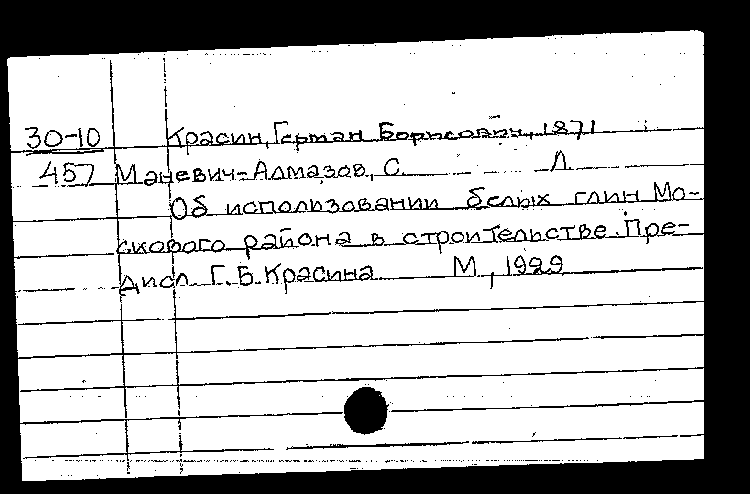 30-10 Красин, Герман Борисович, 1871
457 Маневич-Алмазов, С. Л.
Об использовании белых глин Мо-
сковского района в строительстве. Пре-
дисл. Г. Б. Красина М., 1929